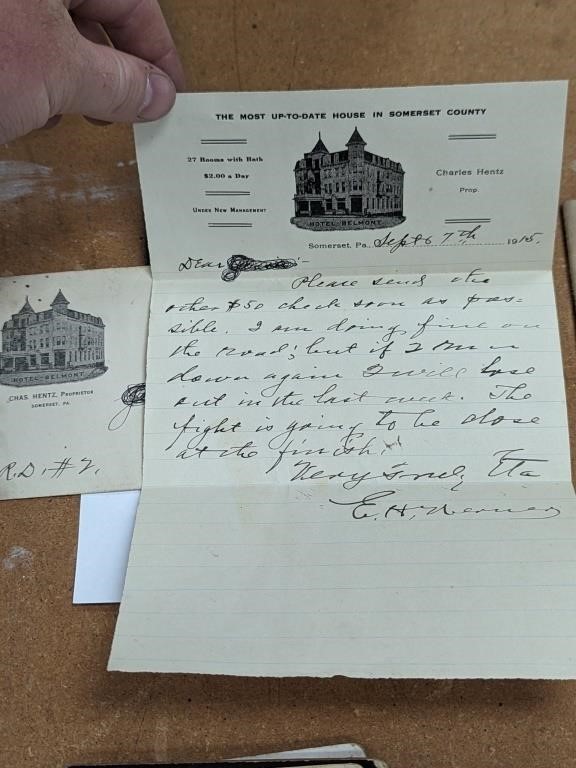 THE MOST UP-TO-DATE HOUSE IN SOMERSET COUNTY
27 Rooms with Bath
$2.00 a Day
UNDER NEW MANAGEMENT
HOTEL BELMONT
Charles Hentz
Prop.
Somerset, Pa., Sept 6 7th, 1915.
Dear :-
Please send the
other $50 check soon as pos-
sible. I am doing fine on
the road; but if I run
down again I will lose
out in the last week. The
fight is going to be close
at the finish.
Very Truly Etc
E. H. Werner
HOTEL BELMONT
CHAS. HENTZ, PROPRIETOR
SOMERSET, PA.
R.D. #2,